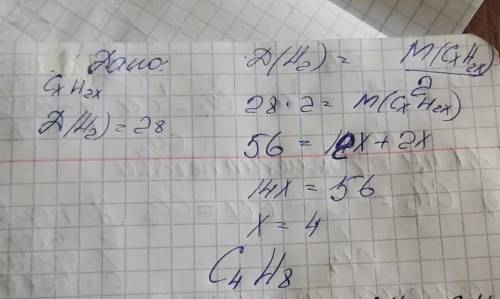 Дано:
CxH2x
D(H2) = 28
D(H2) = M(CxH2x)
2
28 · 2 = M(CxH2x)
56 = 12x + 2x
14x = 56
x = 4
C4H8